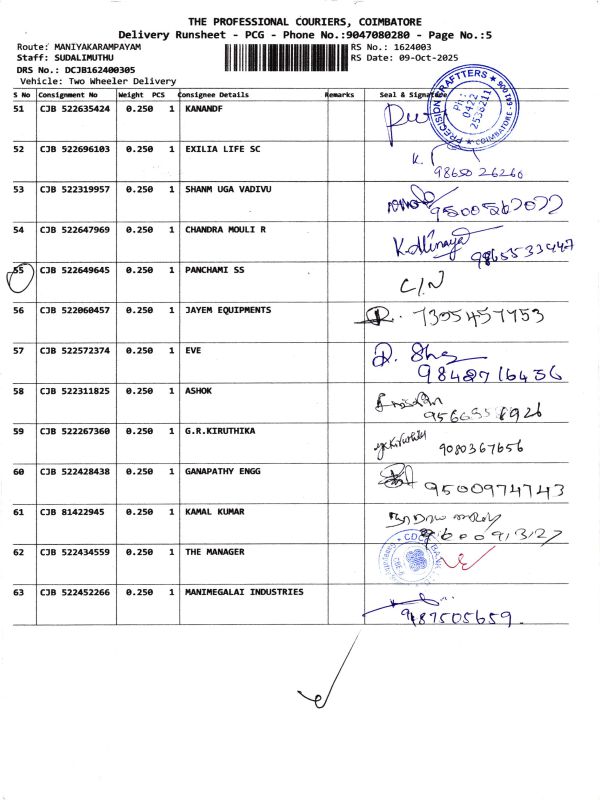 THE PROFESSIONAL COURIERS, COIMBATORE
Delivery Runsheet - PCG - Phone No.:9047080280 - Page No.:5
Route: MANIYAKARAMPAYAM RS No.: 1624003
Staff: SUDALIMUTHU RS Date: 09-Oct-2025
DRS No.: DCJB162400305
Vehicle: Two Wheeler Delivery
S No Consignment No Weight PCS Consignee Details Remarks Seal & Signature
51 CJB 522635424 0.250 1 KANANDF
PRECISION CRAFTTERS COIMBATORE - 641 006
Ph: 0422 2536211
52 CJB 522696103 0.250 1 EXILIA LIFE SC K.
98650 26260
53 CJB 522319957 0.250 1 SHANM UGA VADIVU
9500567077
54 CJB 522647969 0.250 1 CHANDRA MOULI R
9865533447
55 CJB 522649645 0.250 1 PANCHAMI SS C/N
56 CJB 522060457 0.250 1 JAYEM EQUIPMENTS 7305457753
57 CJB 522572374 0.250 1 EVE
9842716456
58 CJB 522311825 0.250 1 ASHOK
59 CJB 522267360 0.250 1 G.R.KIRUTHIKA
9080367656
60 CJB 522428438 0.250 1 GANAPATHY ENGG
9500974743
61 CJB 81422945 0.250 1 KAMAL KUMAR
62 CJB 522434559 0.250 1 THE MANAGER
63 CJB 522452266 0.250 1 MANIMEGALAI INDUSTRIES
9187505659